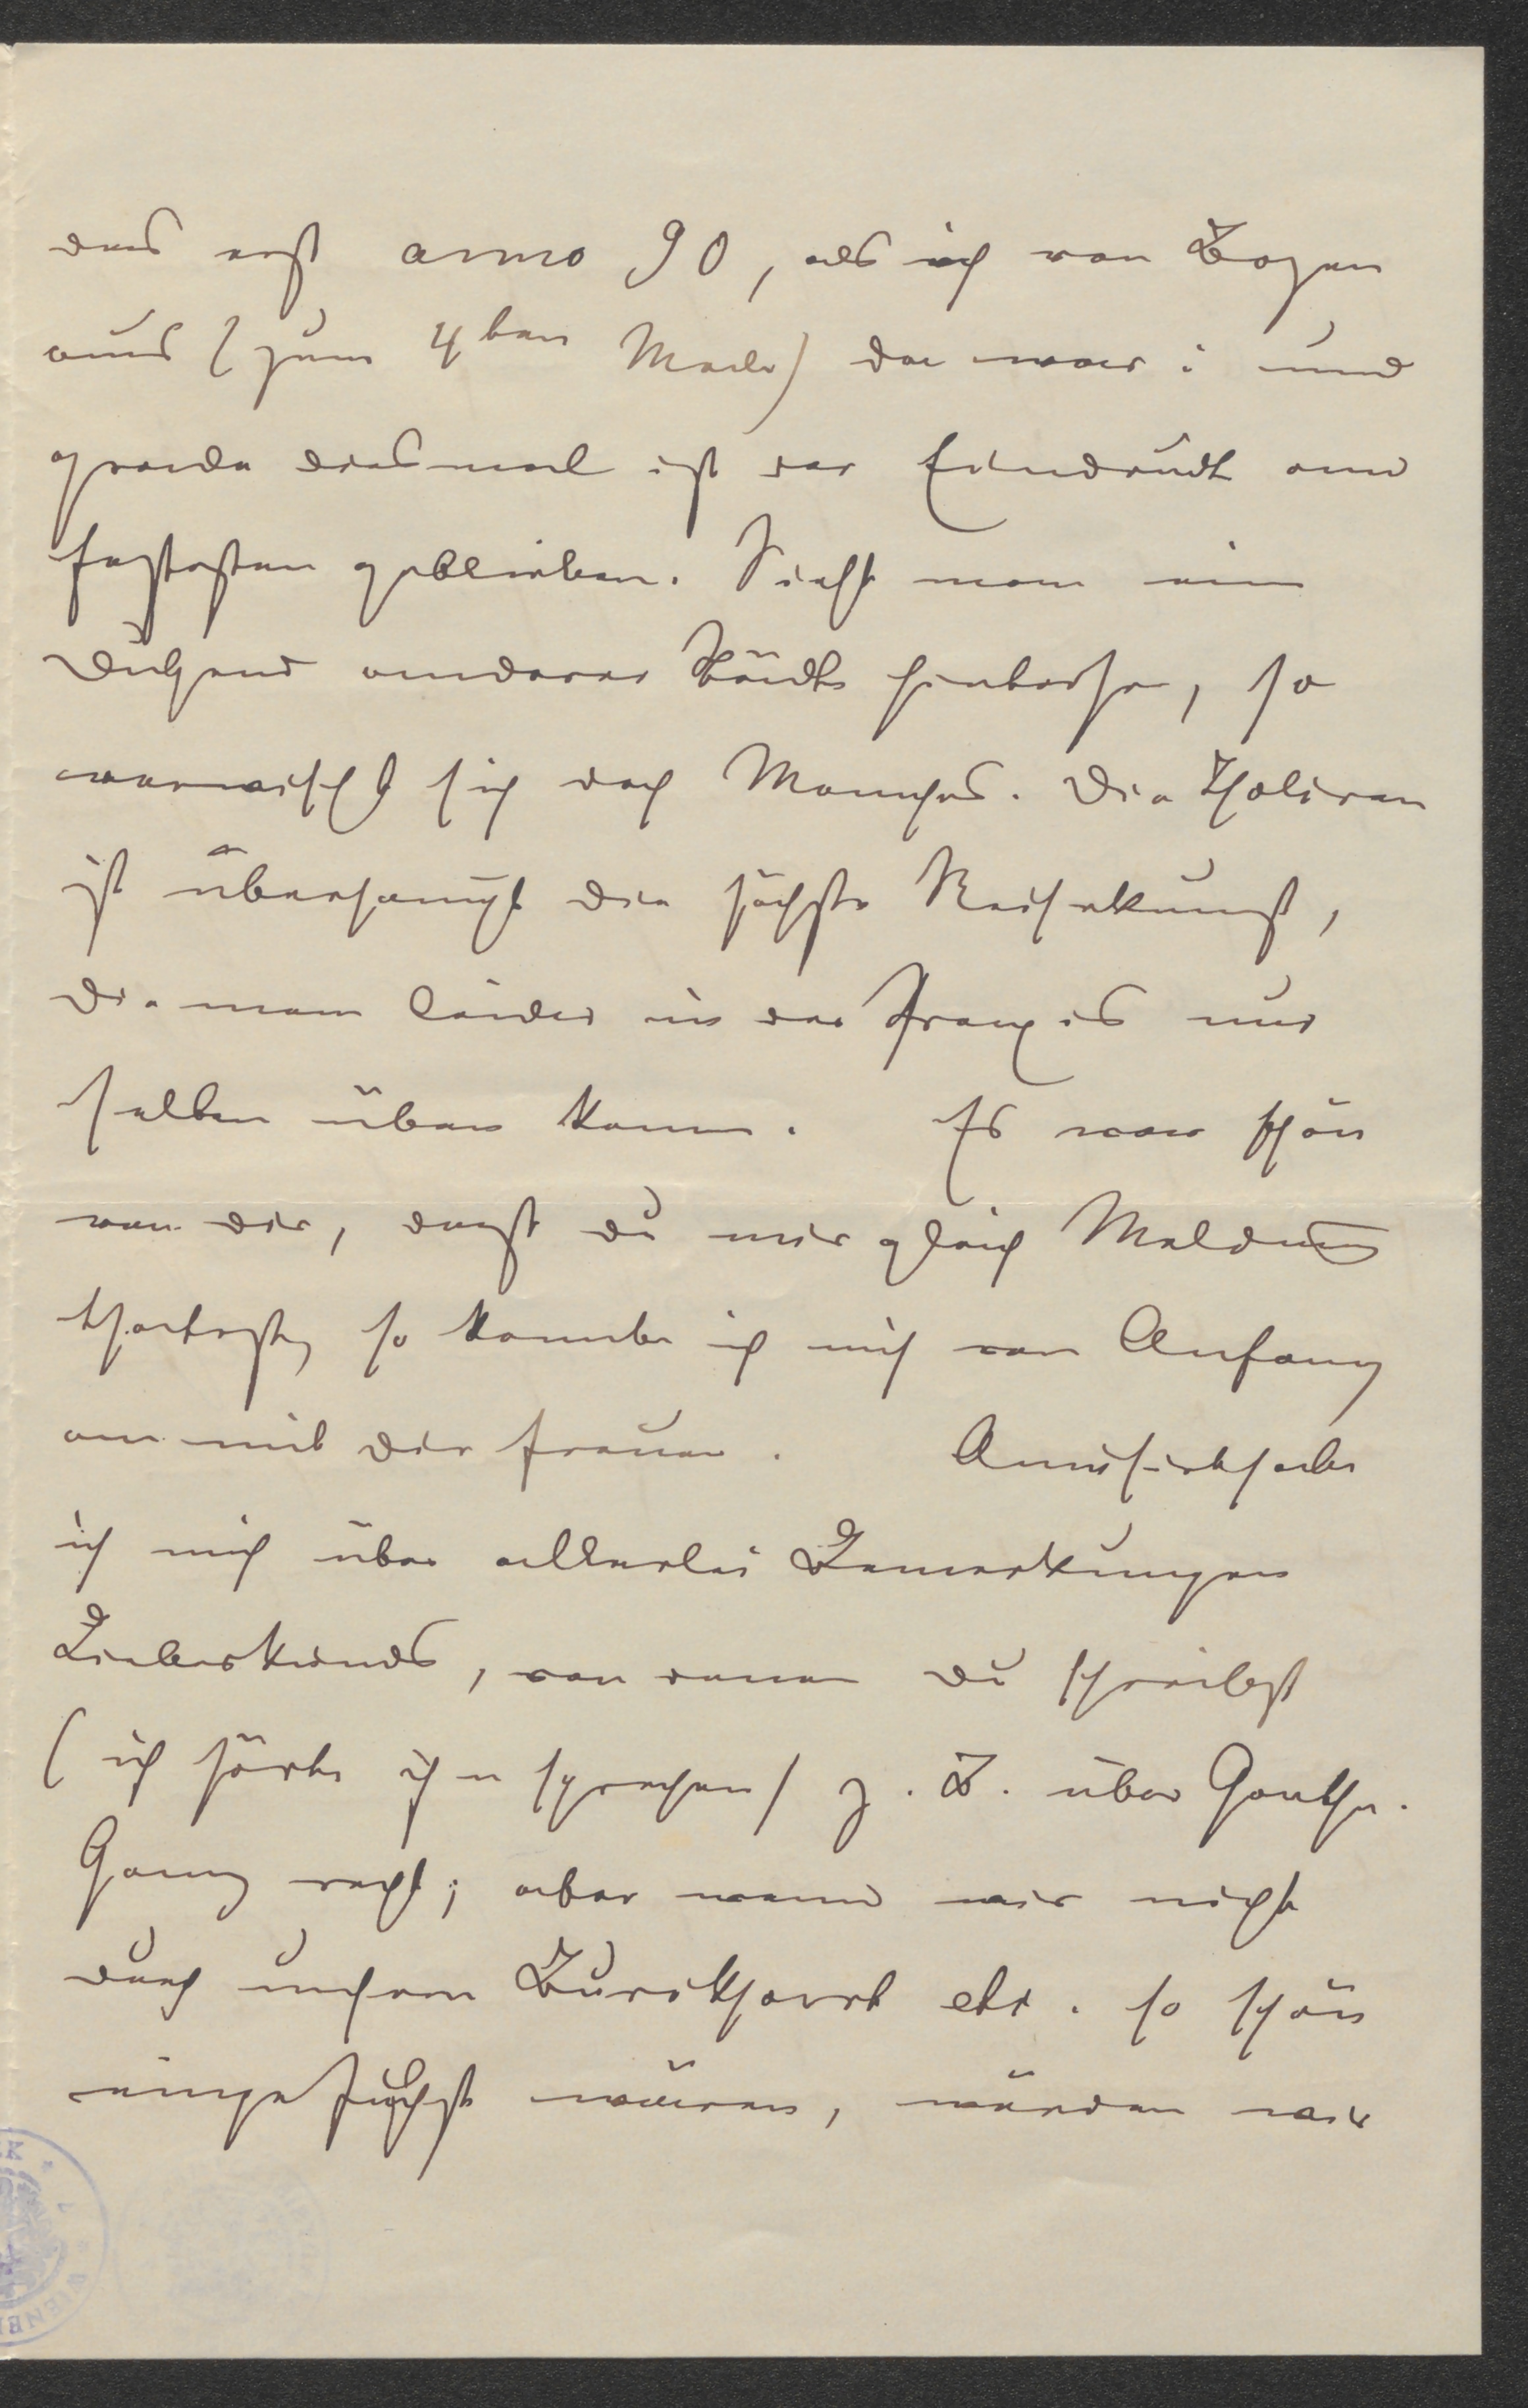 das erst anno 90, als ich von Bozen
aus (zum 4ten Male) da war: und
grade diesmal ist der Eindruck am
festesten geblieben. Sieht man ein
Dutzend anderer Städte hinterher, so
verwischt sich doch Manches. Die
ist überhaupt die höchste Reisekunst,
die man leider in der Praxis nur
selten üben kann. Es war schön
von dir, daß du mir gleich Meldung
thatest, so konnte ich mich von Anfang
an mit dir freuen. Amüsirt habe
ich mich über allerlei Bemerkungen
Liebeskinds, von denen du schreibst
(ich hörte ihn sprechen) z. B. über Goethe.
Ganz recht; aber wenn wir nicht
durch unsern Burckhardt etc. so schön
eingefuchst wären, würden wir